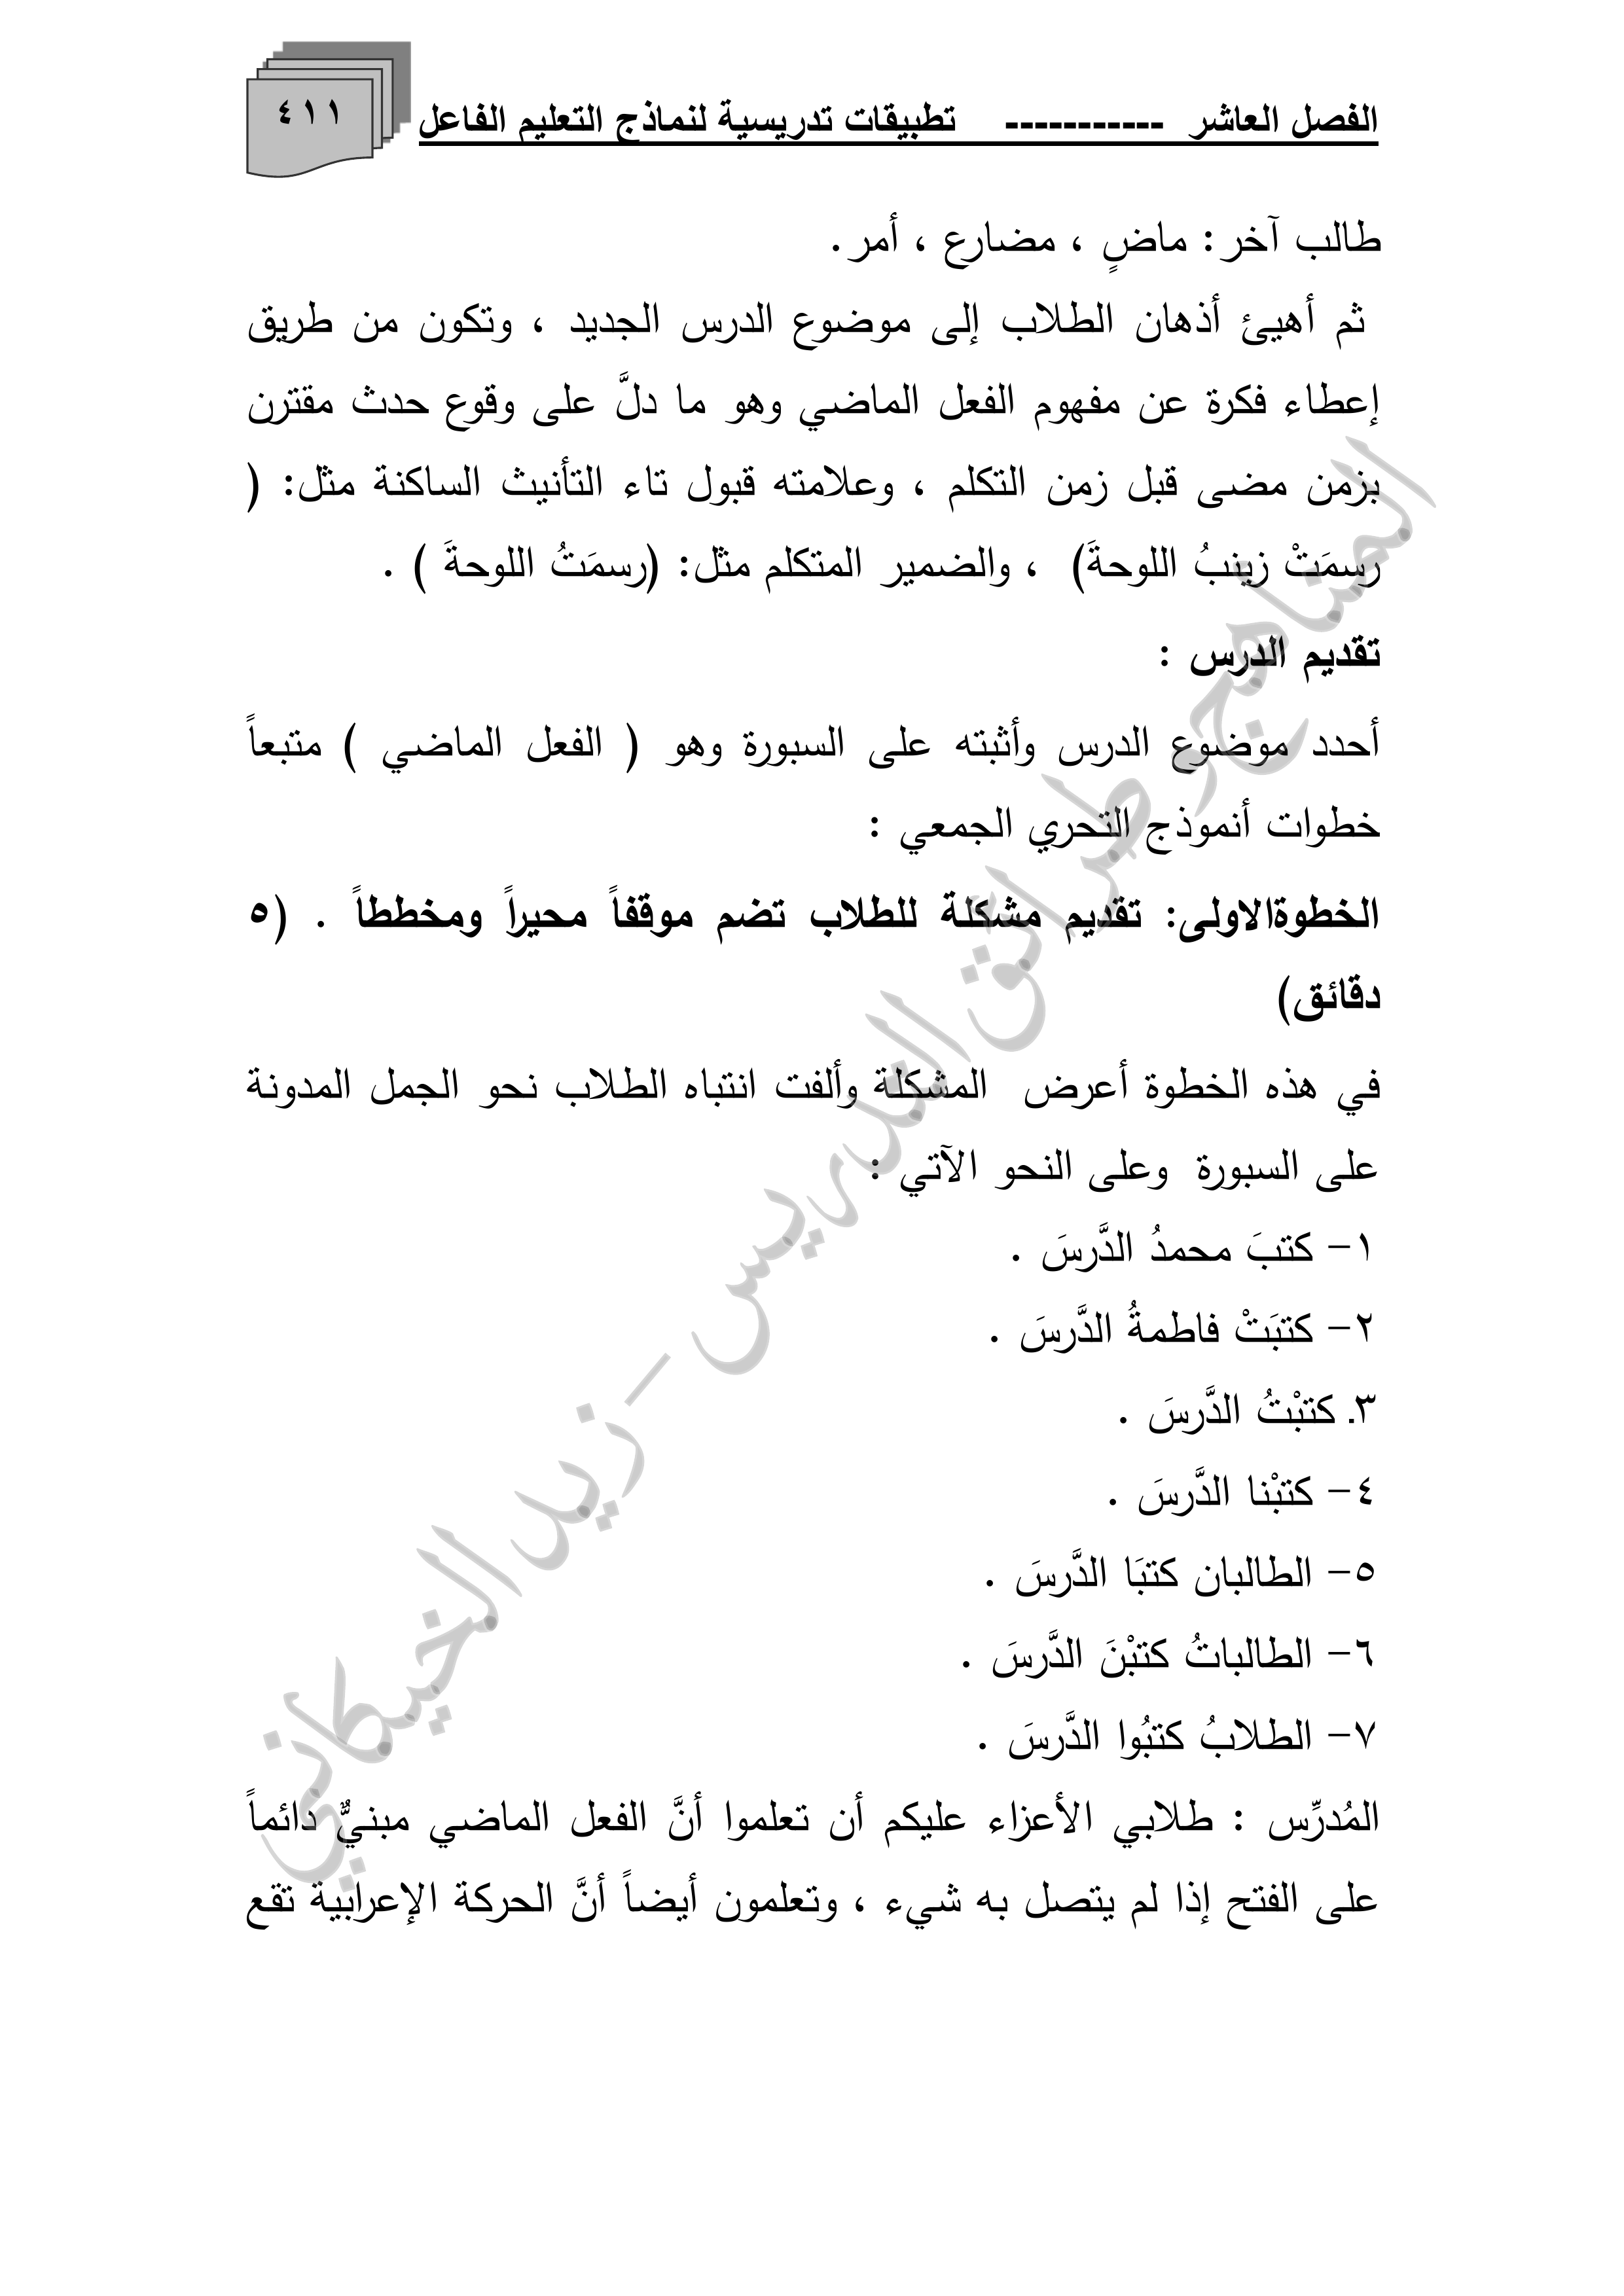 الفصل العاشر ----------- تطبيقات تدريسية لنماذج التعليم الفاعل
٤١١
طالب آخر: ماضٍ ، مضارع ، أمر.
ثم أهيئ أذهان الطلاب إلى موضوع الدرس الجديد ، وتكون من طريق
إعطاء فكرة عن مفهوم الفعل الماضي وهو ما دلَّ على وقوع حدث مقترن
بزمن مضى قبل زمن التكلم ، وعلامته قبول تاء التأنيث الساكنة مثل: (
رسمَتْ زينبُ اللوحةَ) ، والضمير المتكلم مثل: (رسمَتُ اللوحةَ ) .
تقديم الدرس :
أحدد موضوع الدرس وأثبته على السبورة وهو ( الفعل الماضي ) متبعاً
خطوات أنموذج التحري الجمعي :
الخطوةالاولى: تقديم مشكلة للطلاب تضم موقفاً محيراً ومخططاً . (٥
دقائق)
في هذه الخطوة أعرض المشكلة وألفت انتباه الطلاب نحو الجمل المدونة
على السبورة وعلى النحو الآتي :
١- كتبَ محمدُ الدَّرسَ .
٢- كتبَتْ فاطمةُ الدَّرسَ .
٣. كتبْتُ الدَّرسَ .
٤- كتبْنا الدَّرسَ .
٥- الطالبان كتبَا الدَّرسَ .
٦- الطالباتُ كتبْنَ الدَّرسَ .
٧- الطلابُ كتبُوا الدَّرسَ .
المُدرِّس : طلابي الأعزاء عليكم أن تعلموا أنَّ الفعل الماضي مبنيٌّ دائماً
على الفتح إذا لم يتصل به شيء ، وتعلمون أيضاً أنَّ الحركة الإعرابية تقع
المناهج وطرائق التدريس - زيد الخيكاني